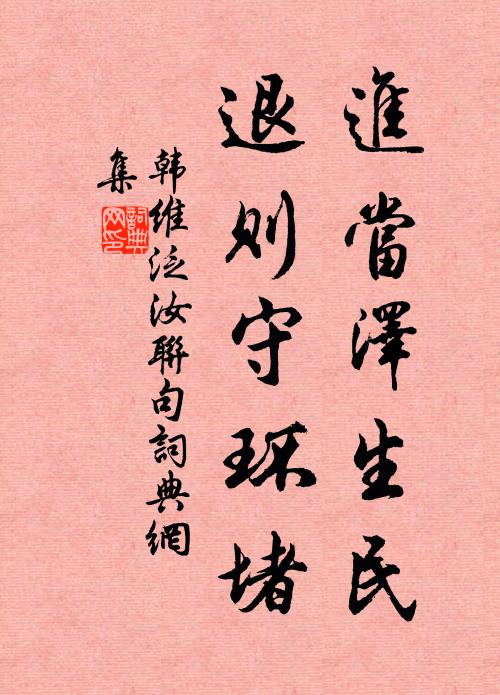 進當澤生民
退則守环堵
韩維泛汝聯句詞典網
集
詞典
网印